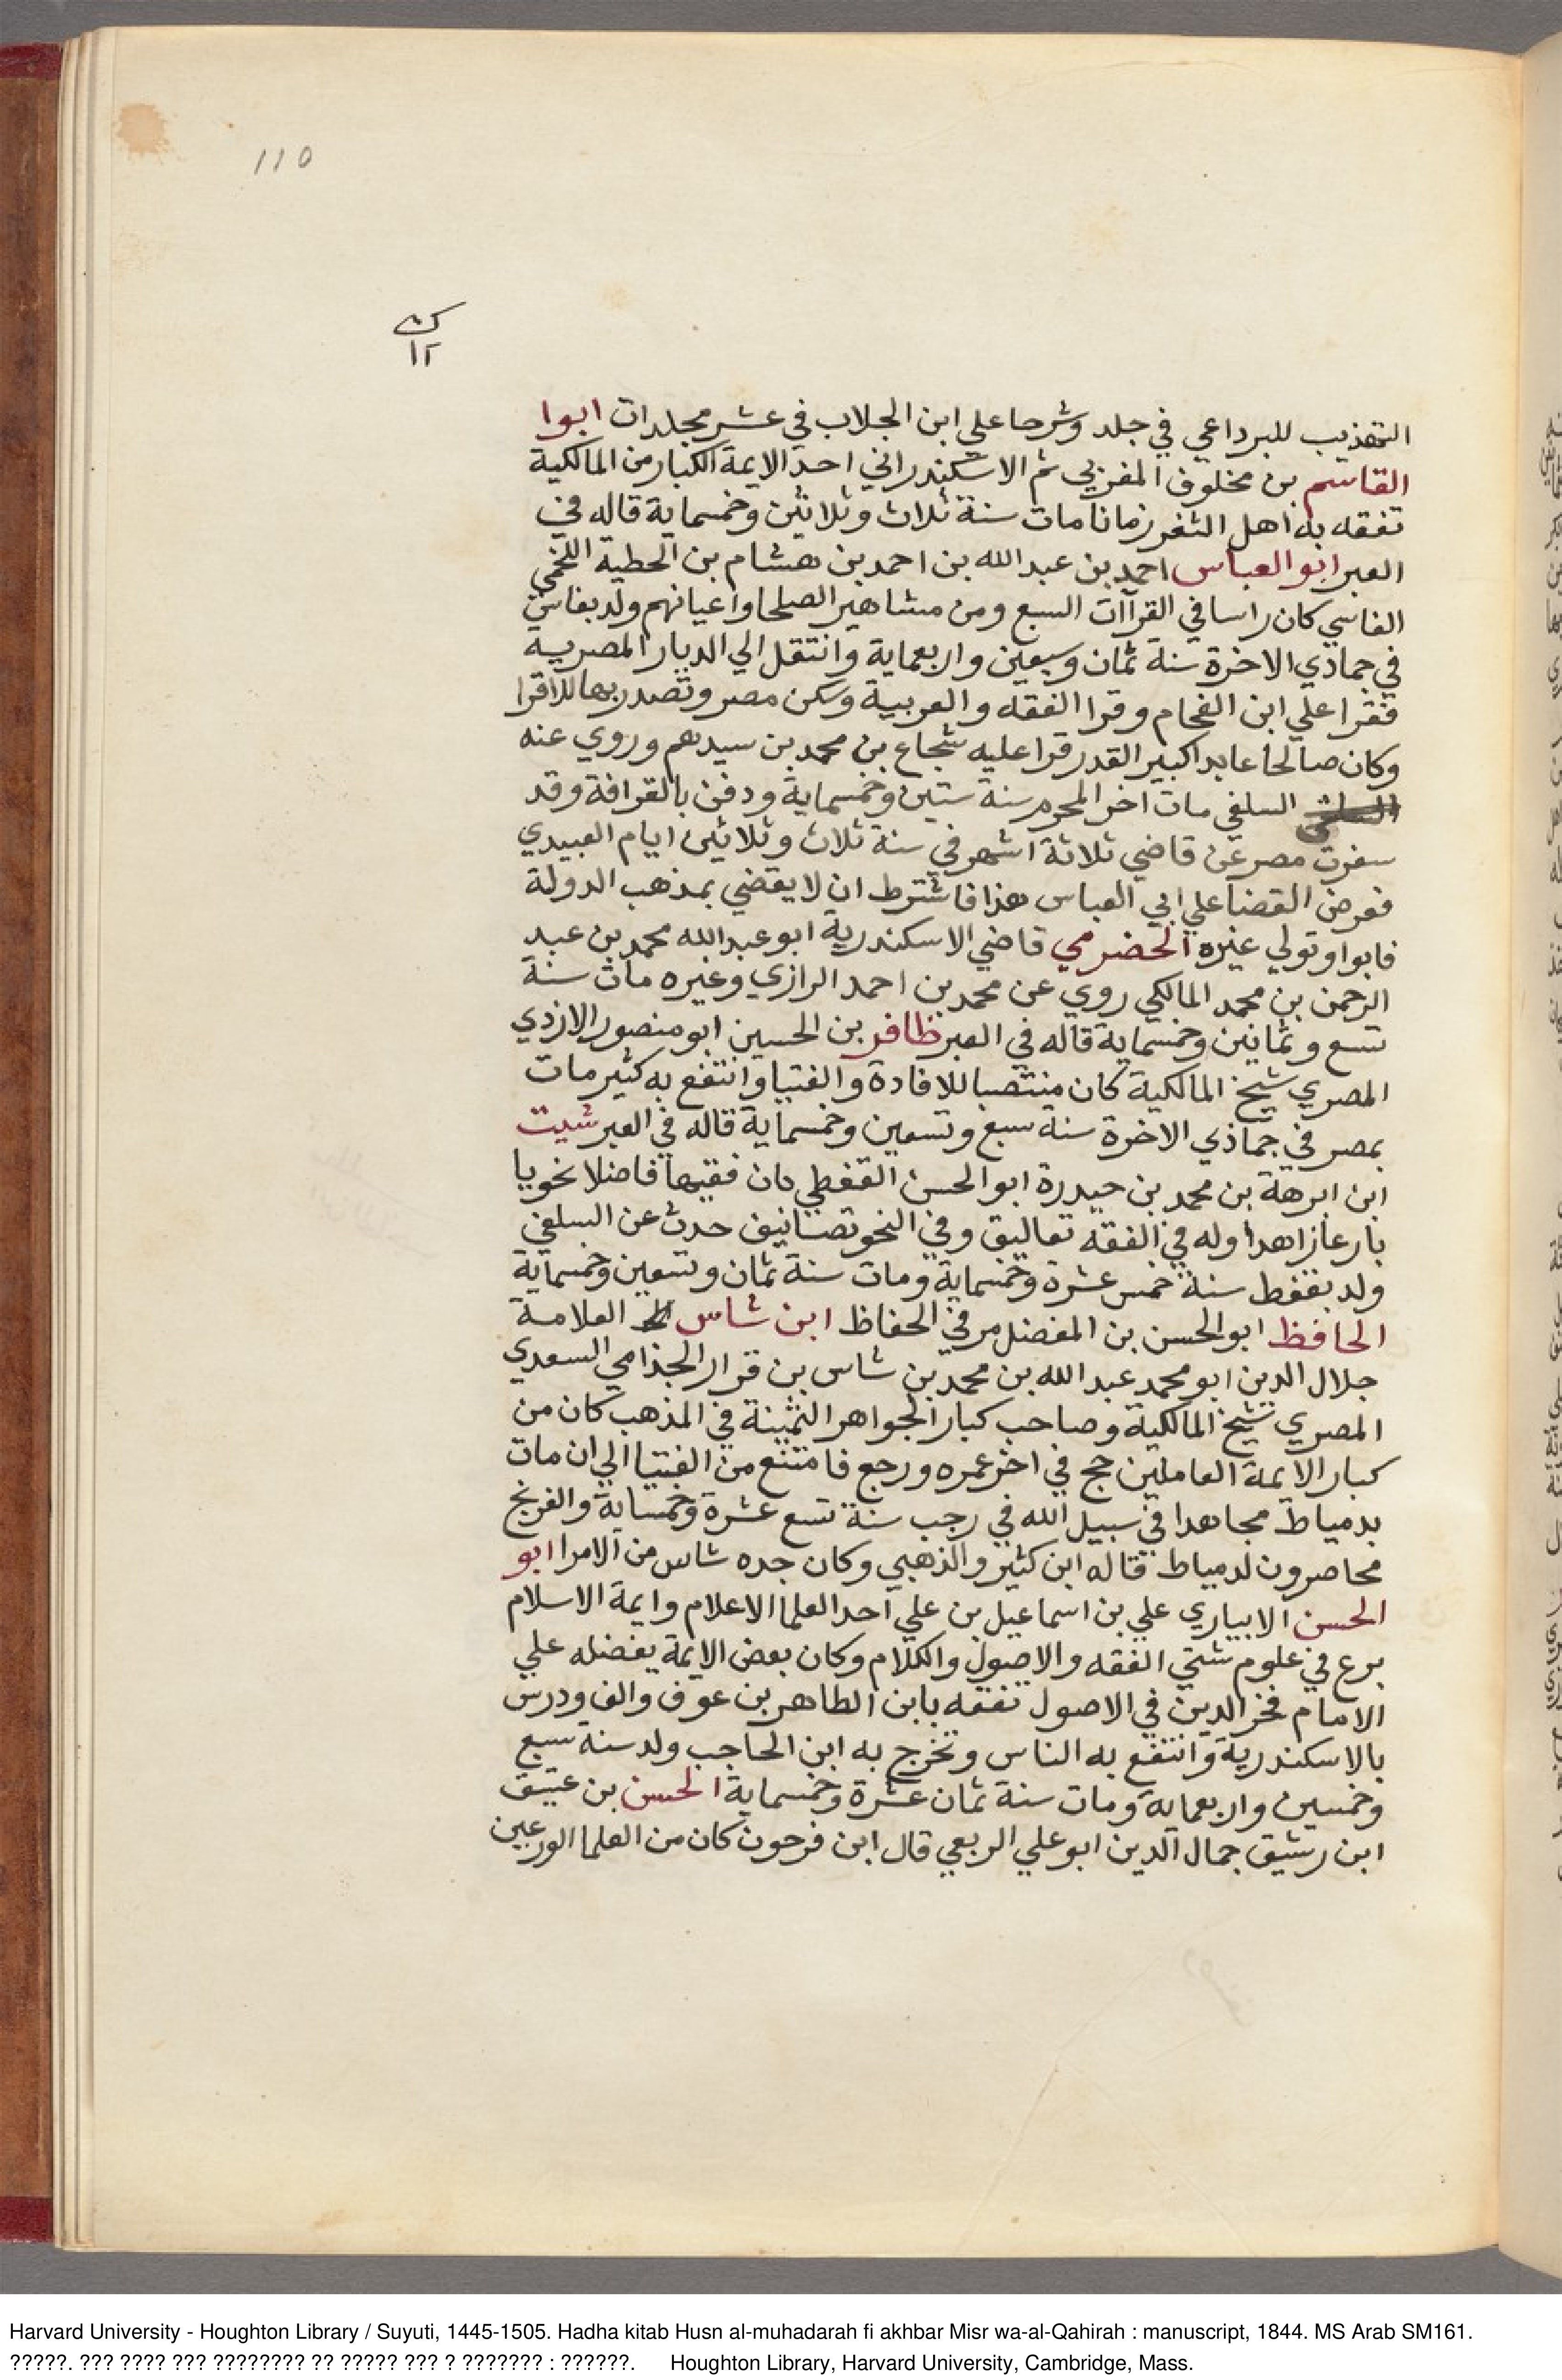 110
ك
١٢
التهذيب للبرداعي في جلد وشرحا علي ابن الجلاب في عشر مجلدات ابوا
القاسم بن مخلوف المغربي ثم الاسكندراني احد الايمة الكبار من المالكية
تفقه به اهل الثغر زمانا مات سنة ثلاث وثلاثين وخمسماية قاله في
العبر ابو العباس احمد بن عبد الله بن احمد بن هشام بن الحطية اللخمي
الفاسي كان راسا في القرآات السبع ومن مشاهير الصلحا واعيانهم ولد بفاس
في جمادي الاخرة سنة ثمان وسبعين واربعماية وانتقل الي الديار المصرية
فقرا علي ابن الفحام وقرا الفقه والعربية وسكن مصر وتصدر بها للاقرا
وكان صالحا عابدا كبير القدر قرا عليه شجاع بن محمد بن سيدهم وروي عنه
السلفي مات اخر المحرم سنة ستين وخمسماية ودفن بالقرافة وقد
سغرت مصر عن قاضي ثلاثة اشهر في سنة ثلاث وثلاثين ايام العبيدي
فعرض القضا علي ابي العباس هذا فاشترط ان لا يقضي بمذهب الدولة
فابوا وتولي غيره الحضرمي قاضي الاسكندرية ابو عبد الله محمد بن عبد
الرحمن بن محمد المالكي روي عن محمد بن احمد الرازي وغيره مات سنة
تسع وثمانين وخمسماية قاله في العبر ظافر بن الحسين ابو منصور الازدي
المصري شيخ المالكية كان منتصبا للافادة والفتيا وانتفع به كثير مات
بمصر في جماذي الاخرة سنة سبع وتسعين وخمسماية قاله في العبر شيت
ابن ابرهة بن محمد بن حيدرة ابو الحسن القفطي كان فقيها فاضلا نحويا
بارعا زاهدا وله في الفقه تعاليق وفي النحو تصانيف حدث عن السلفي
ولد بقفط سنة خمس عشرة وخمسماية ومات سنة ثمان وتسعين وخمسماية
الحافظ ابو الحسن بن المفضل مر في الحفاظ ابن شاس العلامة
جلال الدين ابو محمد عبد الله بن محمد بن شاس بن قرار الجذامي السعدي
المصري شيخ المالكية وصاحب كبار الجواهر الثمينة في المذهب كان من
كبار الايمة العاملين حج في اخر عمره ورجع فامتنع من الفتيا الي ان مات
بدمياط مجاهدا في سبيل الله في رجب سنة تسع عشرة وخمساية والفرنج
محاصرون لدمياط قاله ابن كثير والذهبي وكان جده شاس من الامرا ابو
الحسن الابياري علي بن اسماعيل بن علي احد العلما الاعلام وايمة الاسلام
برع في علوم شتي الفقه والاصول والكلام وكان بعض الايمة يفضله علي
الامام فخر الدين في الاصول تفقه بابن الطاهر بن عوف والف ودرس
بالاسكندرية وانتفع به الناس وتخرج به ابن الحاجب ولد سنة سبع
وخمسين واربعماية ومات سنة ثمان عشرة وخمسماية الحسن بن عتيق
ابن رشيق جمال الدين ابو علي الربعي قال ابن فرحون كان من العلما الورعين
Harvard University - Houghton Library / Suyuti, 1445-1505. Hadha kitab Husn al-muhadarah fi akhbar Misr wa-al-Qahirah : manuscript, 1844. MS Arab SM161.
?????. ??? ???? ??? ???????? ?? ????? ??? ? ??????? : ??????. Houghton Library, Harvard University, Cambridge, Mass.